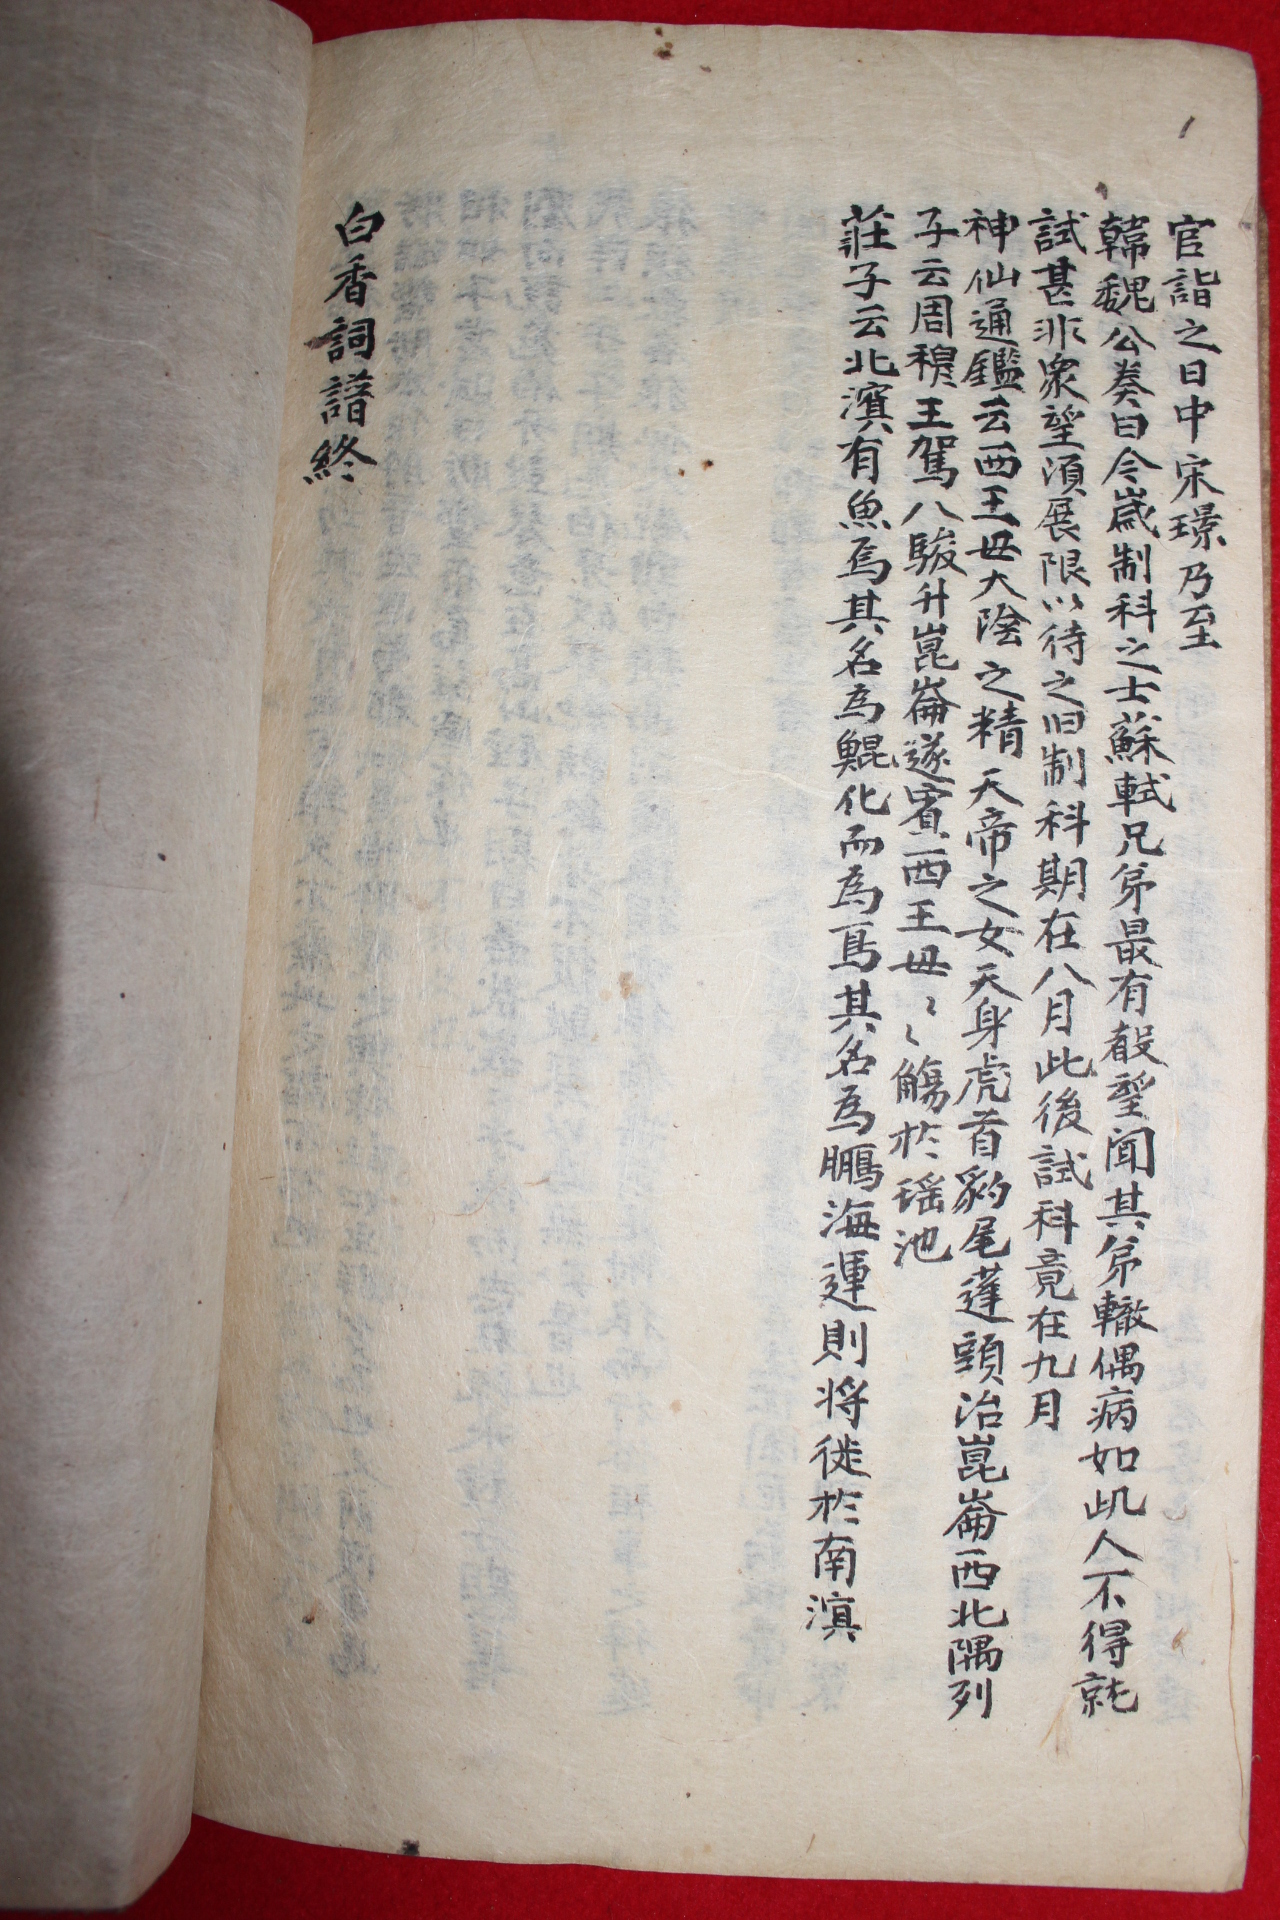 官詣之日中宋璟乃至
韓魏公奏曰今歲制科之士蘇軾兄弟最有聲望聞其弟轍偶病如此人不得就
試甚非衆望須展限以待之旧制科期在八月此後試科竟在九月
神仙通鑑云西王母大陰之精天帝之女天身虎首豹尾蓬頭治崑崙西北隅列
子云周穆王駕八駿升崑崙遂賓西王母〻〻觴於瑤池
莊子云北溟有魚焉其名為鯤化而為鳥其名為鵬海運則将徙於南溟
白香詞譜終